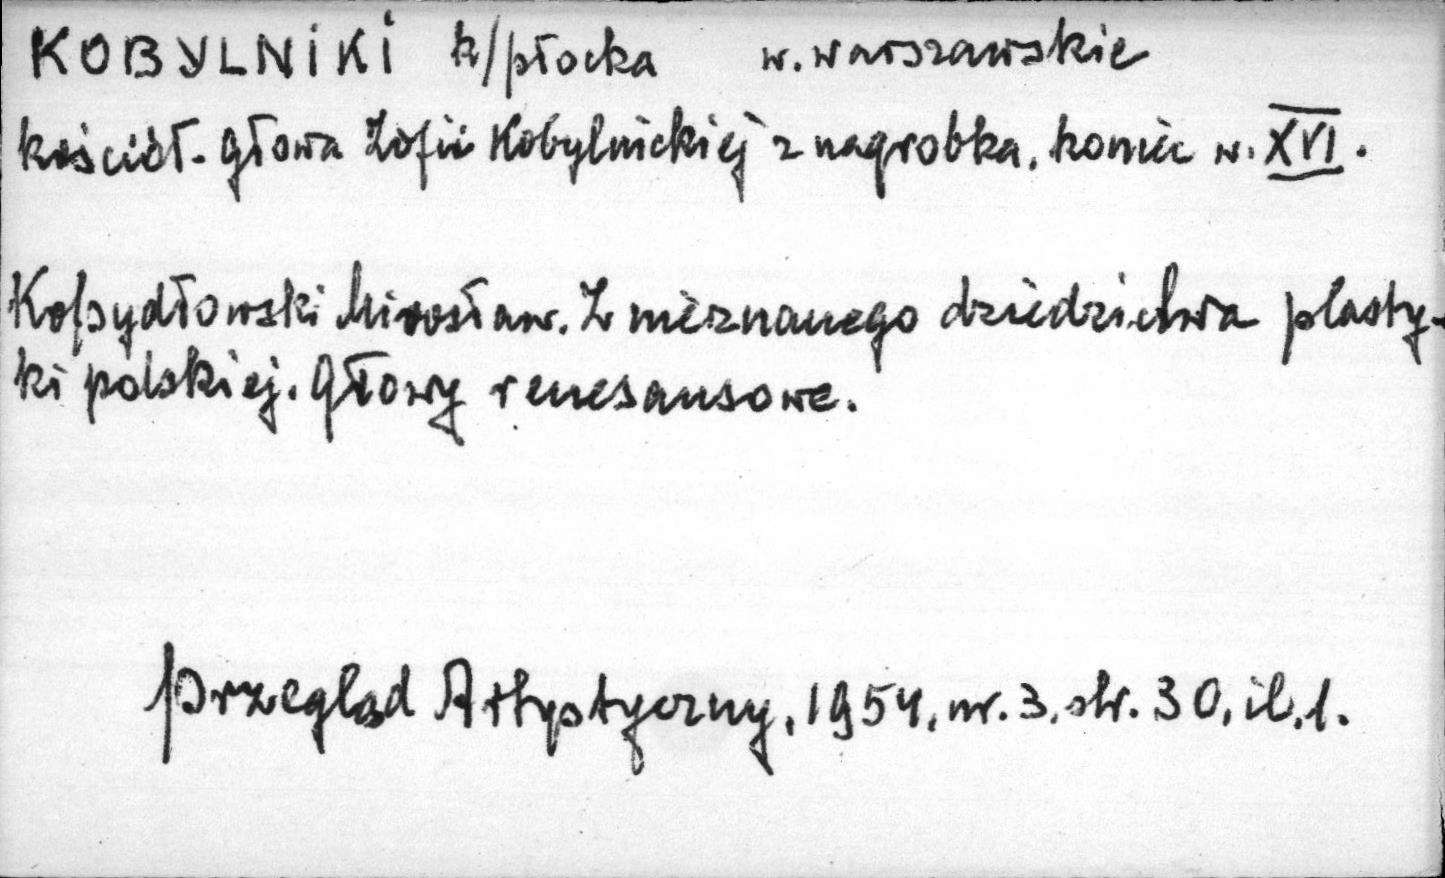 KOBYLNIKI k/płocka w. warszawskie
kościół. Głowa Zofii Kobylnickiej z nagrobka, koniec w. XVI.
Kofsydłowski Mirosław. Z nieznanego dziedzictwa plasty-
ki polskiej. Głowy renesansowe.
Przegląd Artystyczny, 1954, nr. 3, str. 30, il. 1.